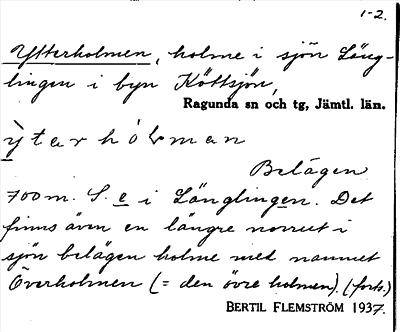 1-2.
Ytterholmen, holme i sjön Läng-
lingen i byn Köttsjön,
Ragunda sn och tg, Jämtl. län.
ỳtarhòlman
Belägen
700 m. S. e i Länglingen. Det
finns även en längre norrut i
sjön belägen holme med namnet
Överholmen (= den övre holmen). (forts.)
BERTIL FLEMSTRÖM 1937.